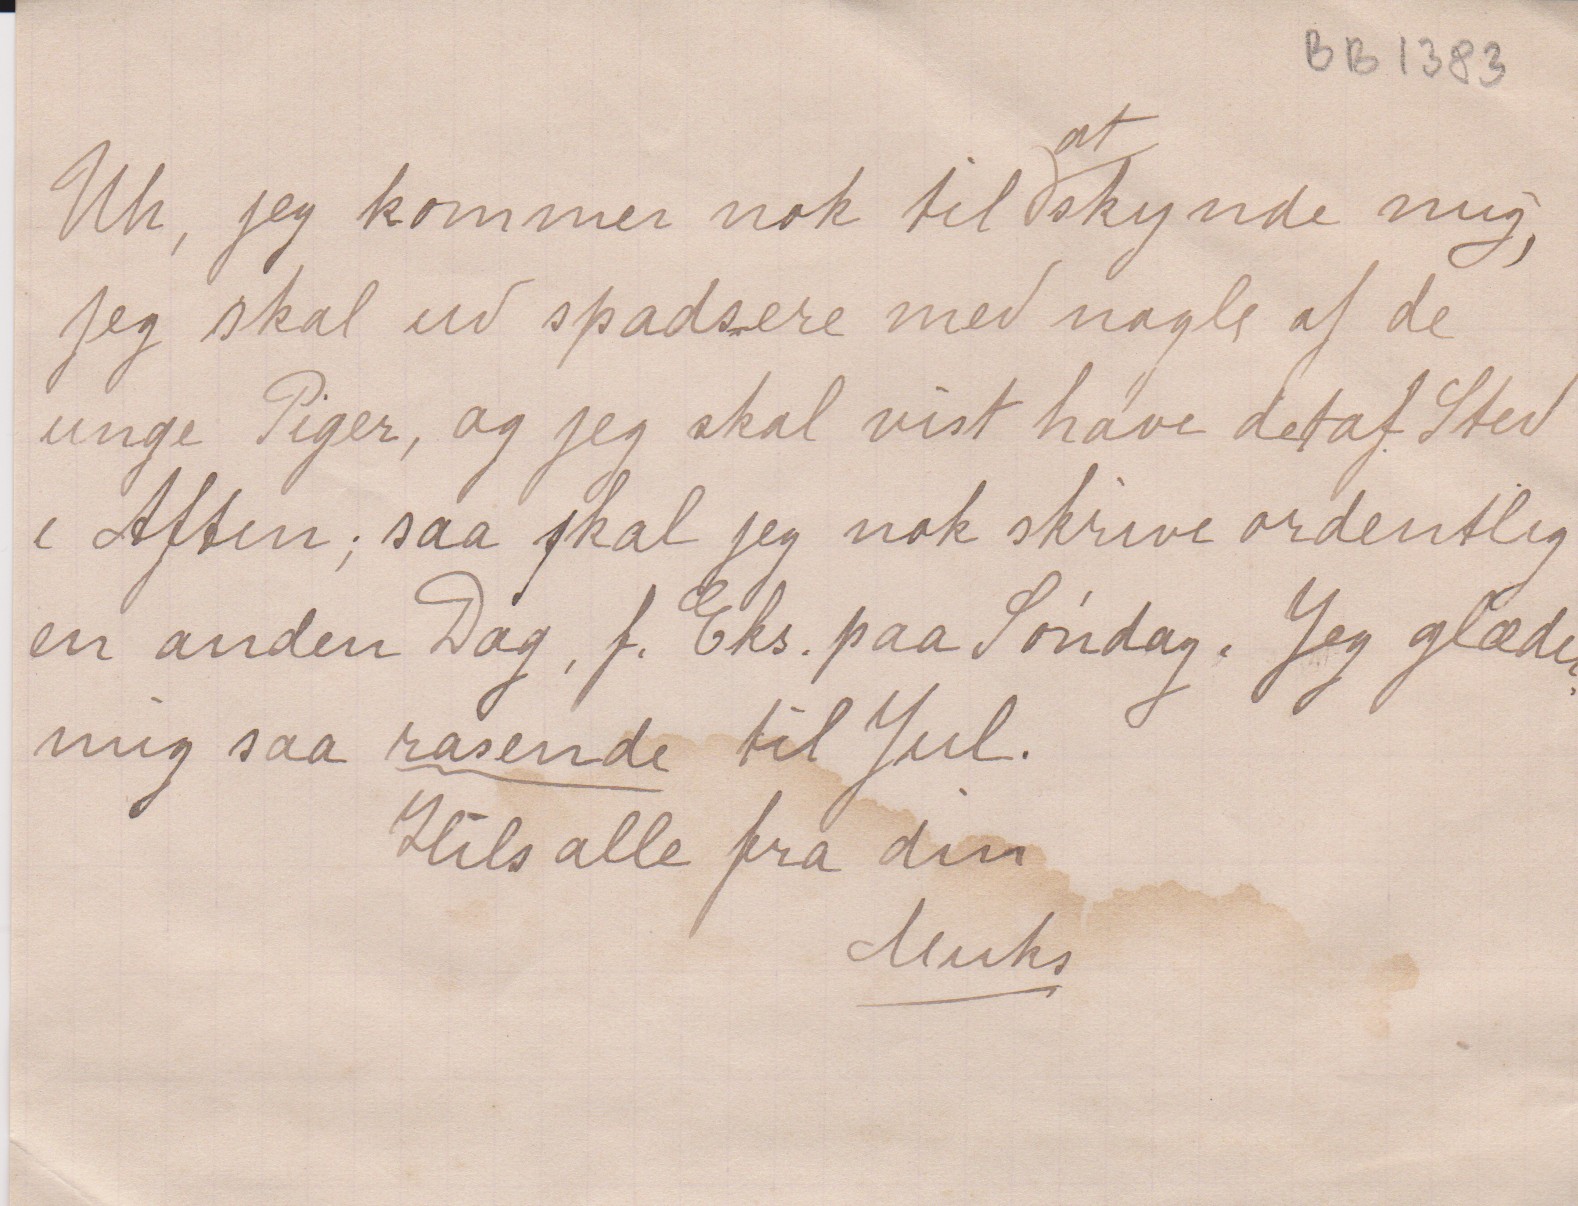 BB1383
Uh, jeg kommer nok til at skynde mig,
jeg skal ud spadsere med nogle af de
unge Piger, og jeg skal vist have det af Sted
i Aften; saa skal jeg nok skrive ordentlig
en anden Dag, f. Eks. paa Søndag. Jeg glæder
mig saa rasende til Jul.
Hils alle fra din
Muks